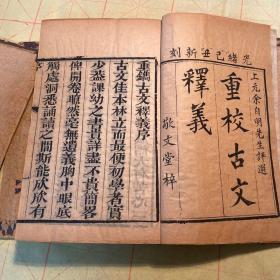 光緒己丑新刻
上元余自明先生評選
重校古文
釋義
敬文堂梓
重鐫古文釋義序
古文佳本林立而最便初學者實
少蓋課幼之書貴詳盡不貴簡畧
俾開卷瞭然意無遺義胸中眼底
觸處洞悉誦讀之間斯能欣欣有